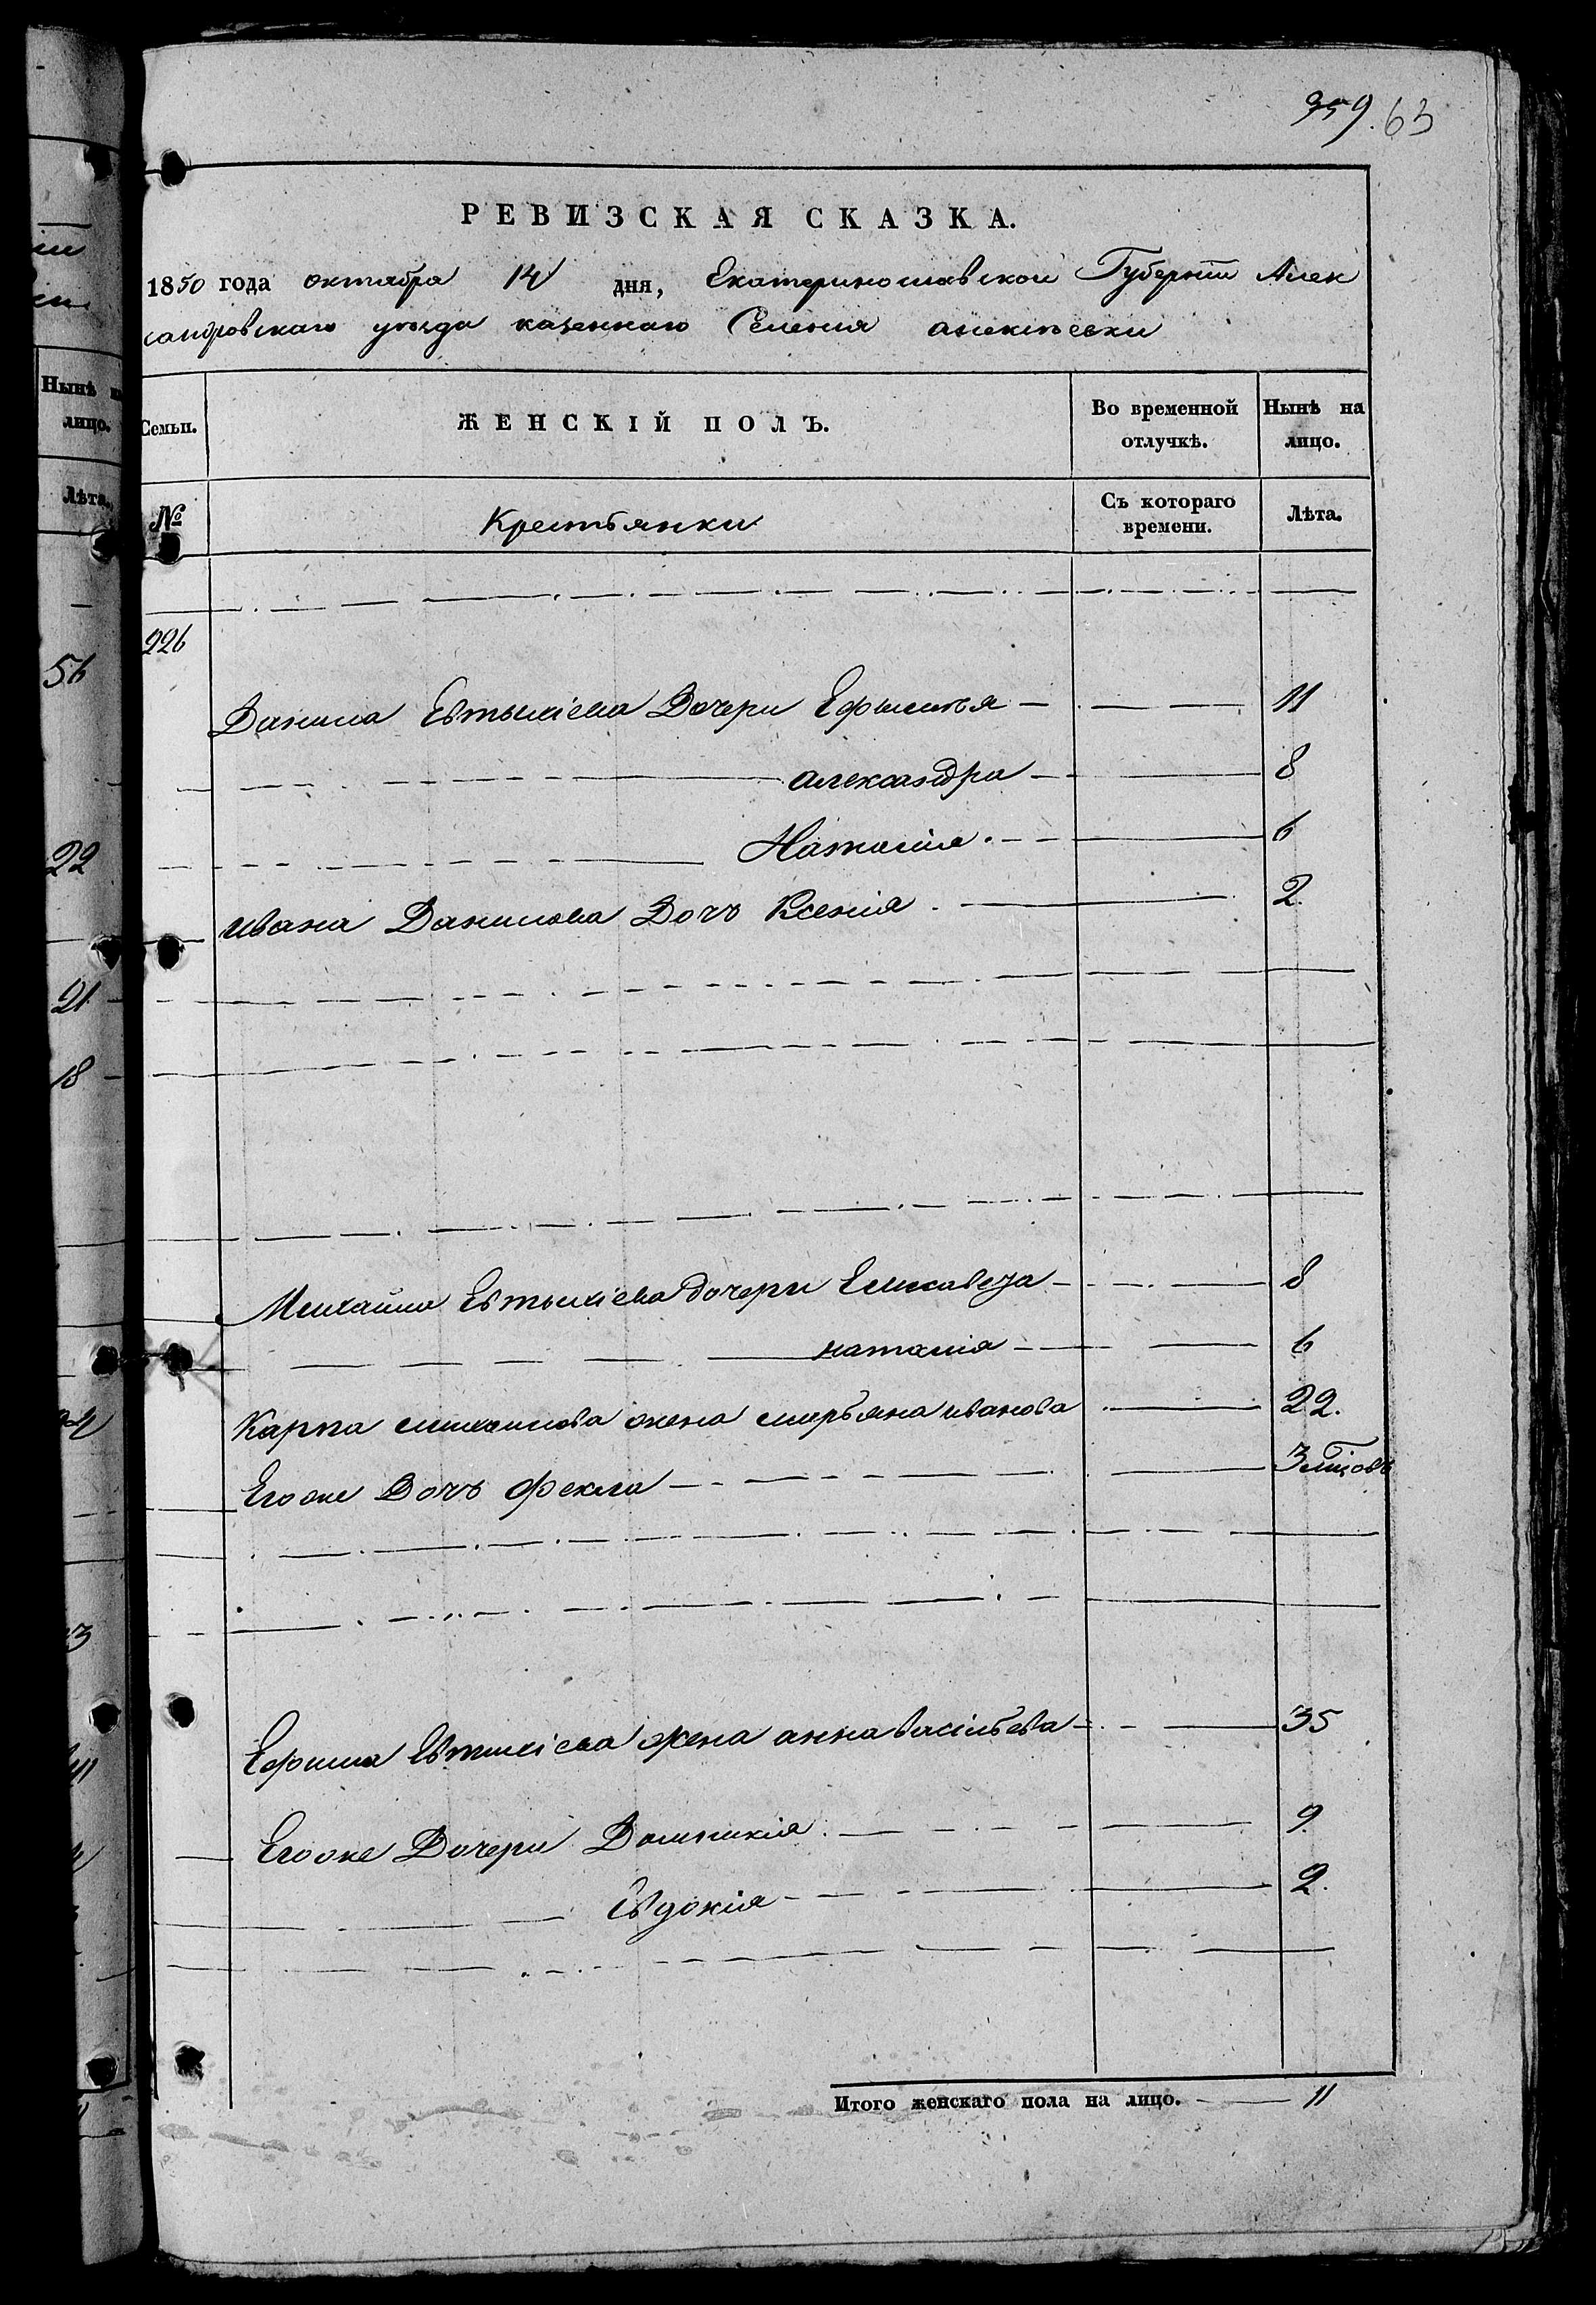 359. 63
РЕВИЗСКАЯ СКАЗКА.
1850 года октября 14 дня, Екатеринославской Губернiи Алек
сандровскаго уѣзда казеннаго Селенiя алексѣевки
Нынѣ
лицо.
Лѣта.
56
22
21
18
Семьи.
ЖЕНСКIЙ ПОЛЪ.
Во временной отлучкѣ.
Нынѣ на лицо.
№
Крестьянки
Съ котораго времени.
Лѣта.
226
Данила Евтыхiева Дочери Ефымья 11
александра 8
Наталiя 6
ивана Данилова Дочь Ксенiя 2
Михайла Евтыхiева дочери Елисавета 8
наталiя 6
Карпа михаилова жена мирьяна иванова 22.
Егоже Дочь Фекла 3 мцовъ
Ефима Евтихiева жена анна васильева 35
Егоже Дочери Домникiя 9
Евдокiя 2.
Итого женскаго пола на лицо. 11